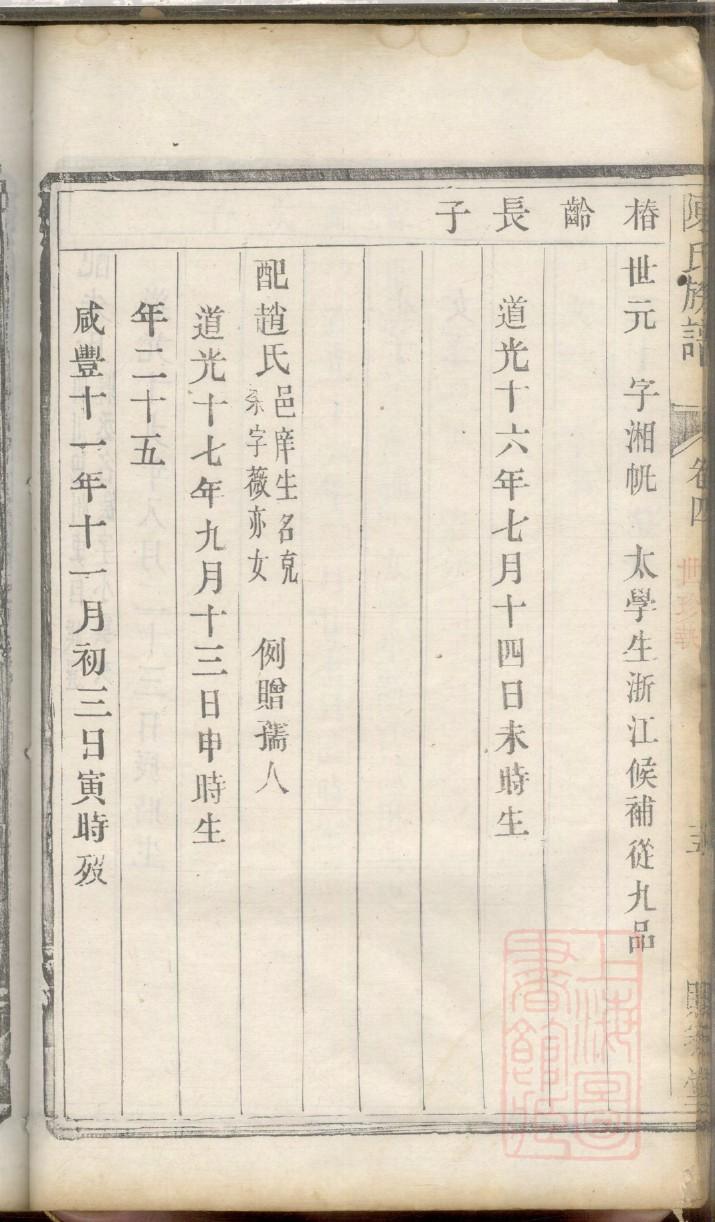 陳氏族譜
卷四
椿齡長子
世元 字湘帆 太學生浙江候補從九品
道光十六年七月十四日未時生
配趙氏 邑庠生名克
字薇亦女 例贈孺人
道光十七年九月十三日申時生
年二十五
咸豐十一年十一月初三日寅時歿
上海圖書館藏